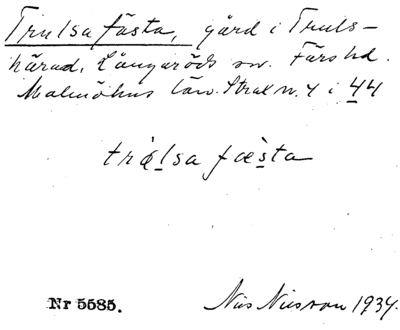 Trulsafästa, gård i Truls-
härad, Långaröds sn. Färs hd.
Malmöhus län. Strax n. 4 i 44
trǽlsa fæ̀sta
Nr 5585. Nils Nilsson 1934.